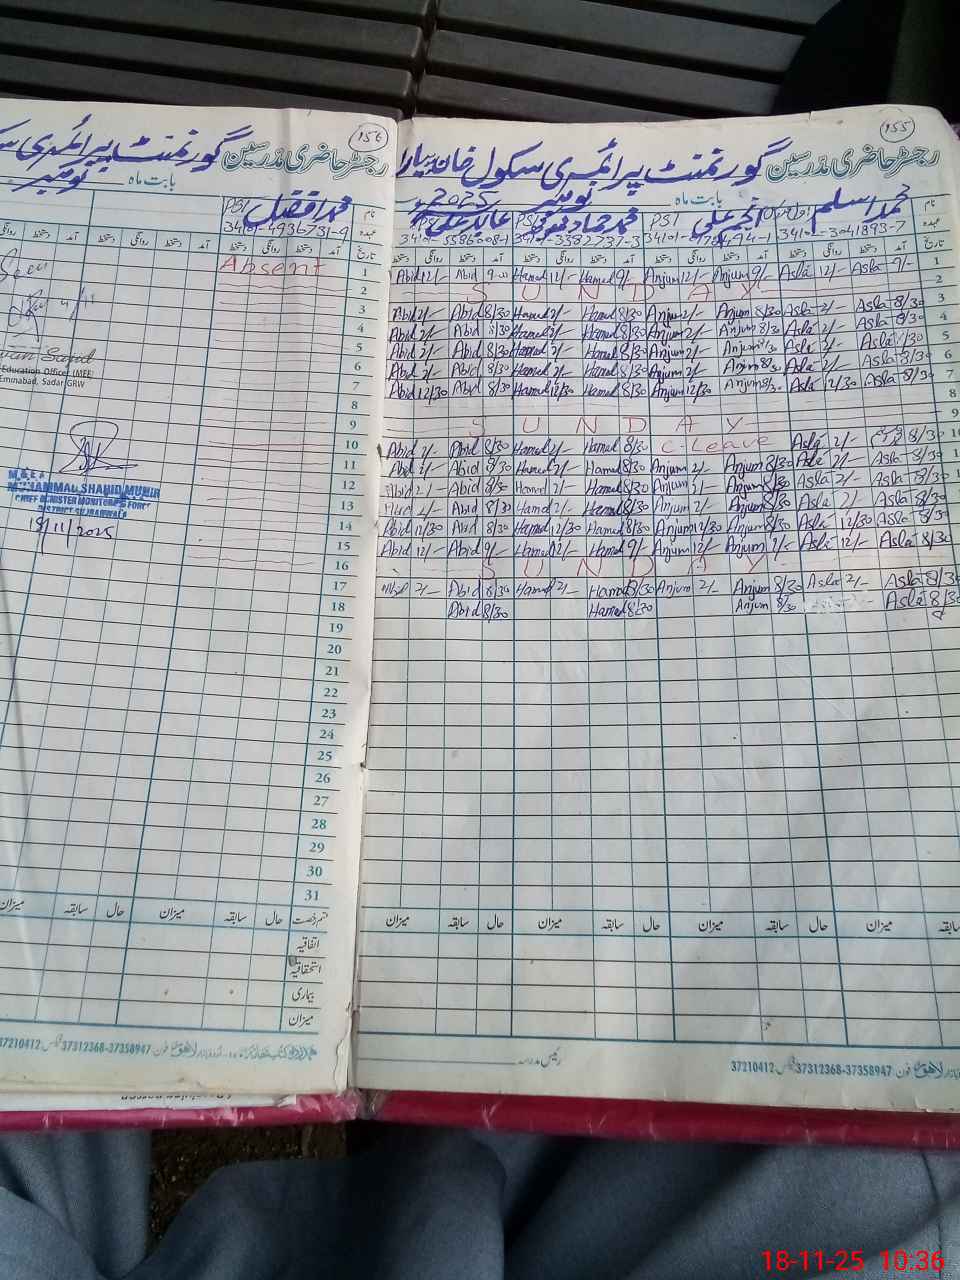 155
رجسٹر حاضری مدرسین گورنمنٹ پرائمری سکول خان پیارا
بابت ماہ نومبر 2025
نام محمد اسلم انجم علی PST محمد حماد PST عابد علی
عہدہ 34101-3041893-7 34101- 34101-3382737-3 34101-5586008-1
تاریخ آمد دستخط روانگی دستخط آمد دستخط روانگی دستخط آمد دستخط روانگی دستخط آمد دستخط روانگی دستخط
1 Abid 12/- Abid 9-00 Hamad 12/- Hamad 9/- Anjum 12/- Anjum 9/- Asla 12/- Asla 9/-
2 SUNDAY
3 Abid 2/- Abid 8/30 Hamad 2/- Hamad 8/30 Anjum 2/- Anjum 8/30 Asla 2/- Asla 8/30
4 Abid 2/- Abid 8/30 Hamad 2/- Hamad 8/30 Anjum 2/- Anjum 8/30 Asla 2/- Asla 8/30
5 Abid 2/- Abid 8/30 Hamad 2/- Hamad 8/30 Anjum 2/- Anjum Asla 2/- Asla 8/30
6 Abid 2/- Abid 8/30 Hamad 2/- Hamad 8/30 Anjum 2/- Anjum 8/30 Asla 2/- Asla 8/30
7 Abid 12/30 Abid 8/30 Hamad 12/30 Hamad 8/30 Anjum 12/30 Anjum 8/30 Asla 12/30 Asla 8/30
8
9 SUNDAY
10 Abid 2/- Abid 8/30 Hamad 2/- Hamad 8/30 C-Leave Asla 2/- 8/30
11 Abid 2/- Abid 8/30 Hamad 2/- Hamad 8/30 Anjum 2/- Anjum 8/30 Asla 2/- Asla 8/30
12 Abid 2/- Abid 8/30 Hamad 2/- Hamad 8/30 Anjum Anjum 8/30 Asla 2/- Asla 8/30
13 Abid 2/- Abid 8/30 Hamad 2/- Hamad 8/30 Anjum 2/- Anjum 8/30 Asla 2/- Asla 8/30
14 Abid 12/30 Abid 8/30 Hamad 12/30 Hamad 8/30 Anjum 12/30 Anjum 8/30 Asla 12/30 Asla 8/30
15 Abid 12/- Abid 9/- Hamad 12/- Hamad 9/- Anjum 12/- Anjum 9/- Asla 12/- Asla 8/30
16 SUNDAY
17 Abid 2/- Abid 8/30 Hamad 2/- Hamad 8/30 Anjum 2/- Anjum 8/30 Asla 2/- Asla 8/30
18 Abid 8/30 Hamad 8/30 Anjum 8/30 Asla 8/30
حال سابقہ میزان حال سابقہ میزان حال سابقہ میزان
رئیس مدرسہ
لاہور فون 37312368-37358947 فیکس 37210412
156
رجسٹر حاضری مدرسین گورنمنٹ پرائمری
بابت ماہ نومبر
نام محمد افضل PST
عہدہ 34101-4936731-9
تاریخ آمد دستخط روانگی دستخط آمد دستخط روانگی دستخط
1 Absent
2
3
4
5
6
7
8
9
10
11
12
13
14
15
16
17
18
19
20
21
22
23
24
25
26
27
28
29
30
31
Seen
Education Officer (MEE)
Eminabad, Sadar GRW
MUHAMMAD SHAHID MUNIR
CHIEF MINISTER MONITORING FORCE
DISTRICT GUJRANWALA
18/11/2025
قسم رخصت حال سابقہ میزان حال سابقہ میزان
اتفاقیہ
استحقاقیہ
بیماری
میزان
لاہور فون 37312368-37358947 فیکس 37210412
18-11-25 10:36